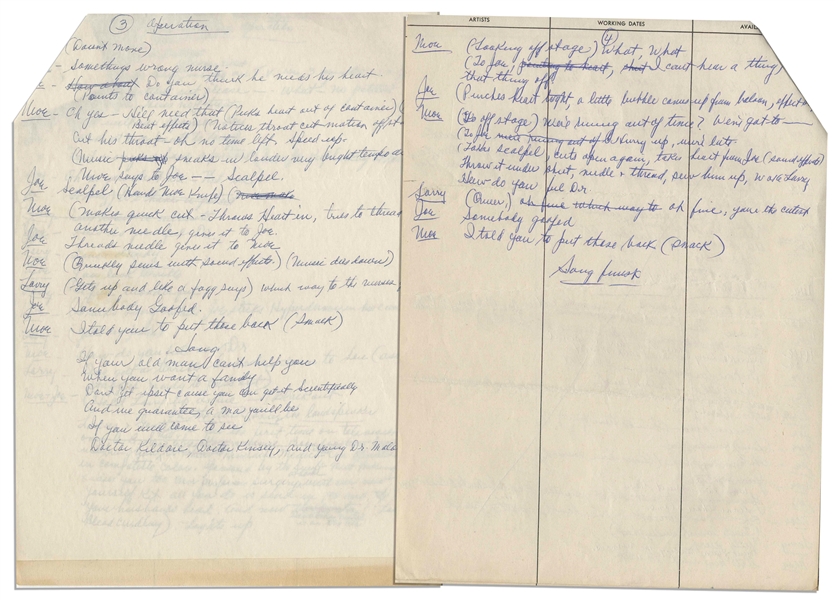 3 Operation
(Doesn't move)
- Somethings wrong nurse
- How about Do you think he needs his heart
(Points to container)
Moe - Oh yes - He'll need that (Picks heart out of container)
Beat effects) (Notices throat cut motion off st
Cut his throat - oh no time left. Speed up.
(Music picks up sneaks in louder very bright tempo
Moe says to Joe -- Scalpel.
Joe Scalpel (Hands Moe Knife)
Moe (Makes quick cut - Throws Heart in, tries to thread
another needle, gives it to Joe.
Joe - Threads needle gives it to Moe
Moe (Quickly sews with sound effects) (Music dies down)
Larry (Gets up and like a fagg says) which way to the nurses
Joe Somebody Goofed.
Moe I told you to put those back (Smack)
Song
If your old man can't help you
When you want a family
Don't get upset cause you can get it Scientifically
And we guarantee, a ma you'll be
If you will come to see
Doctor Kildare, Doctor Kinsey, and young Dr. Malo
ARTISTS
WORKING DATES
AVAI
4
Moe (Looking off stage) What, What
(To Joe pointing to heart, shit I cant hear a thing)
that thing off
Joe (Punches heart, a little bubble comes up from baloon, effect
Moe (To off stage) We're running out of time? We've got to -
(To Joe were running out of Hurry up, we're late
(Takes scalpel, cuts open again, takes heart from Joe (sound effects)
Throws it under sheet, needle & thread, sews him up, wake Larry
How do you feel Dr.
Larry (Queer) oh fine which way to oh fine, youre the cutest
Joe Somebody goofed
Moe I told you to put those back (smack)
Song finish